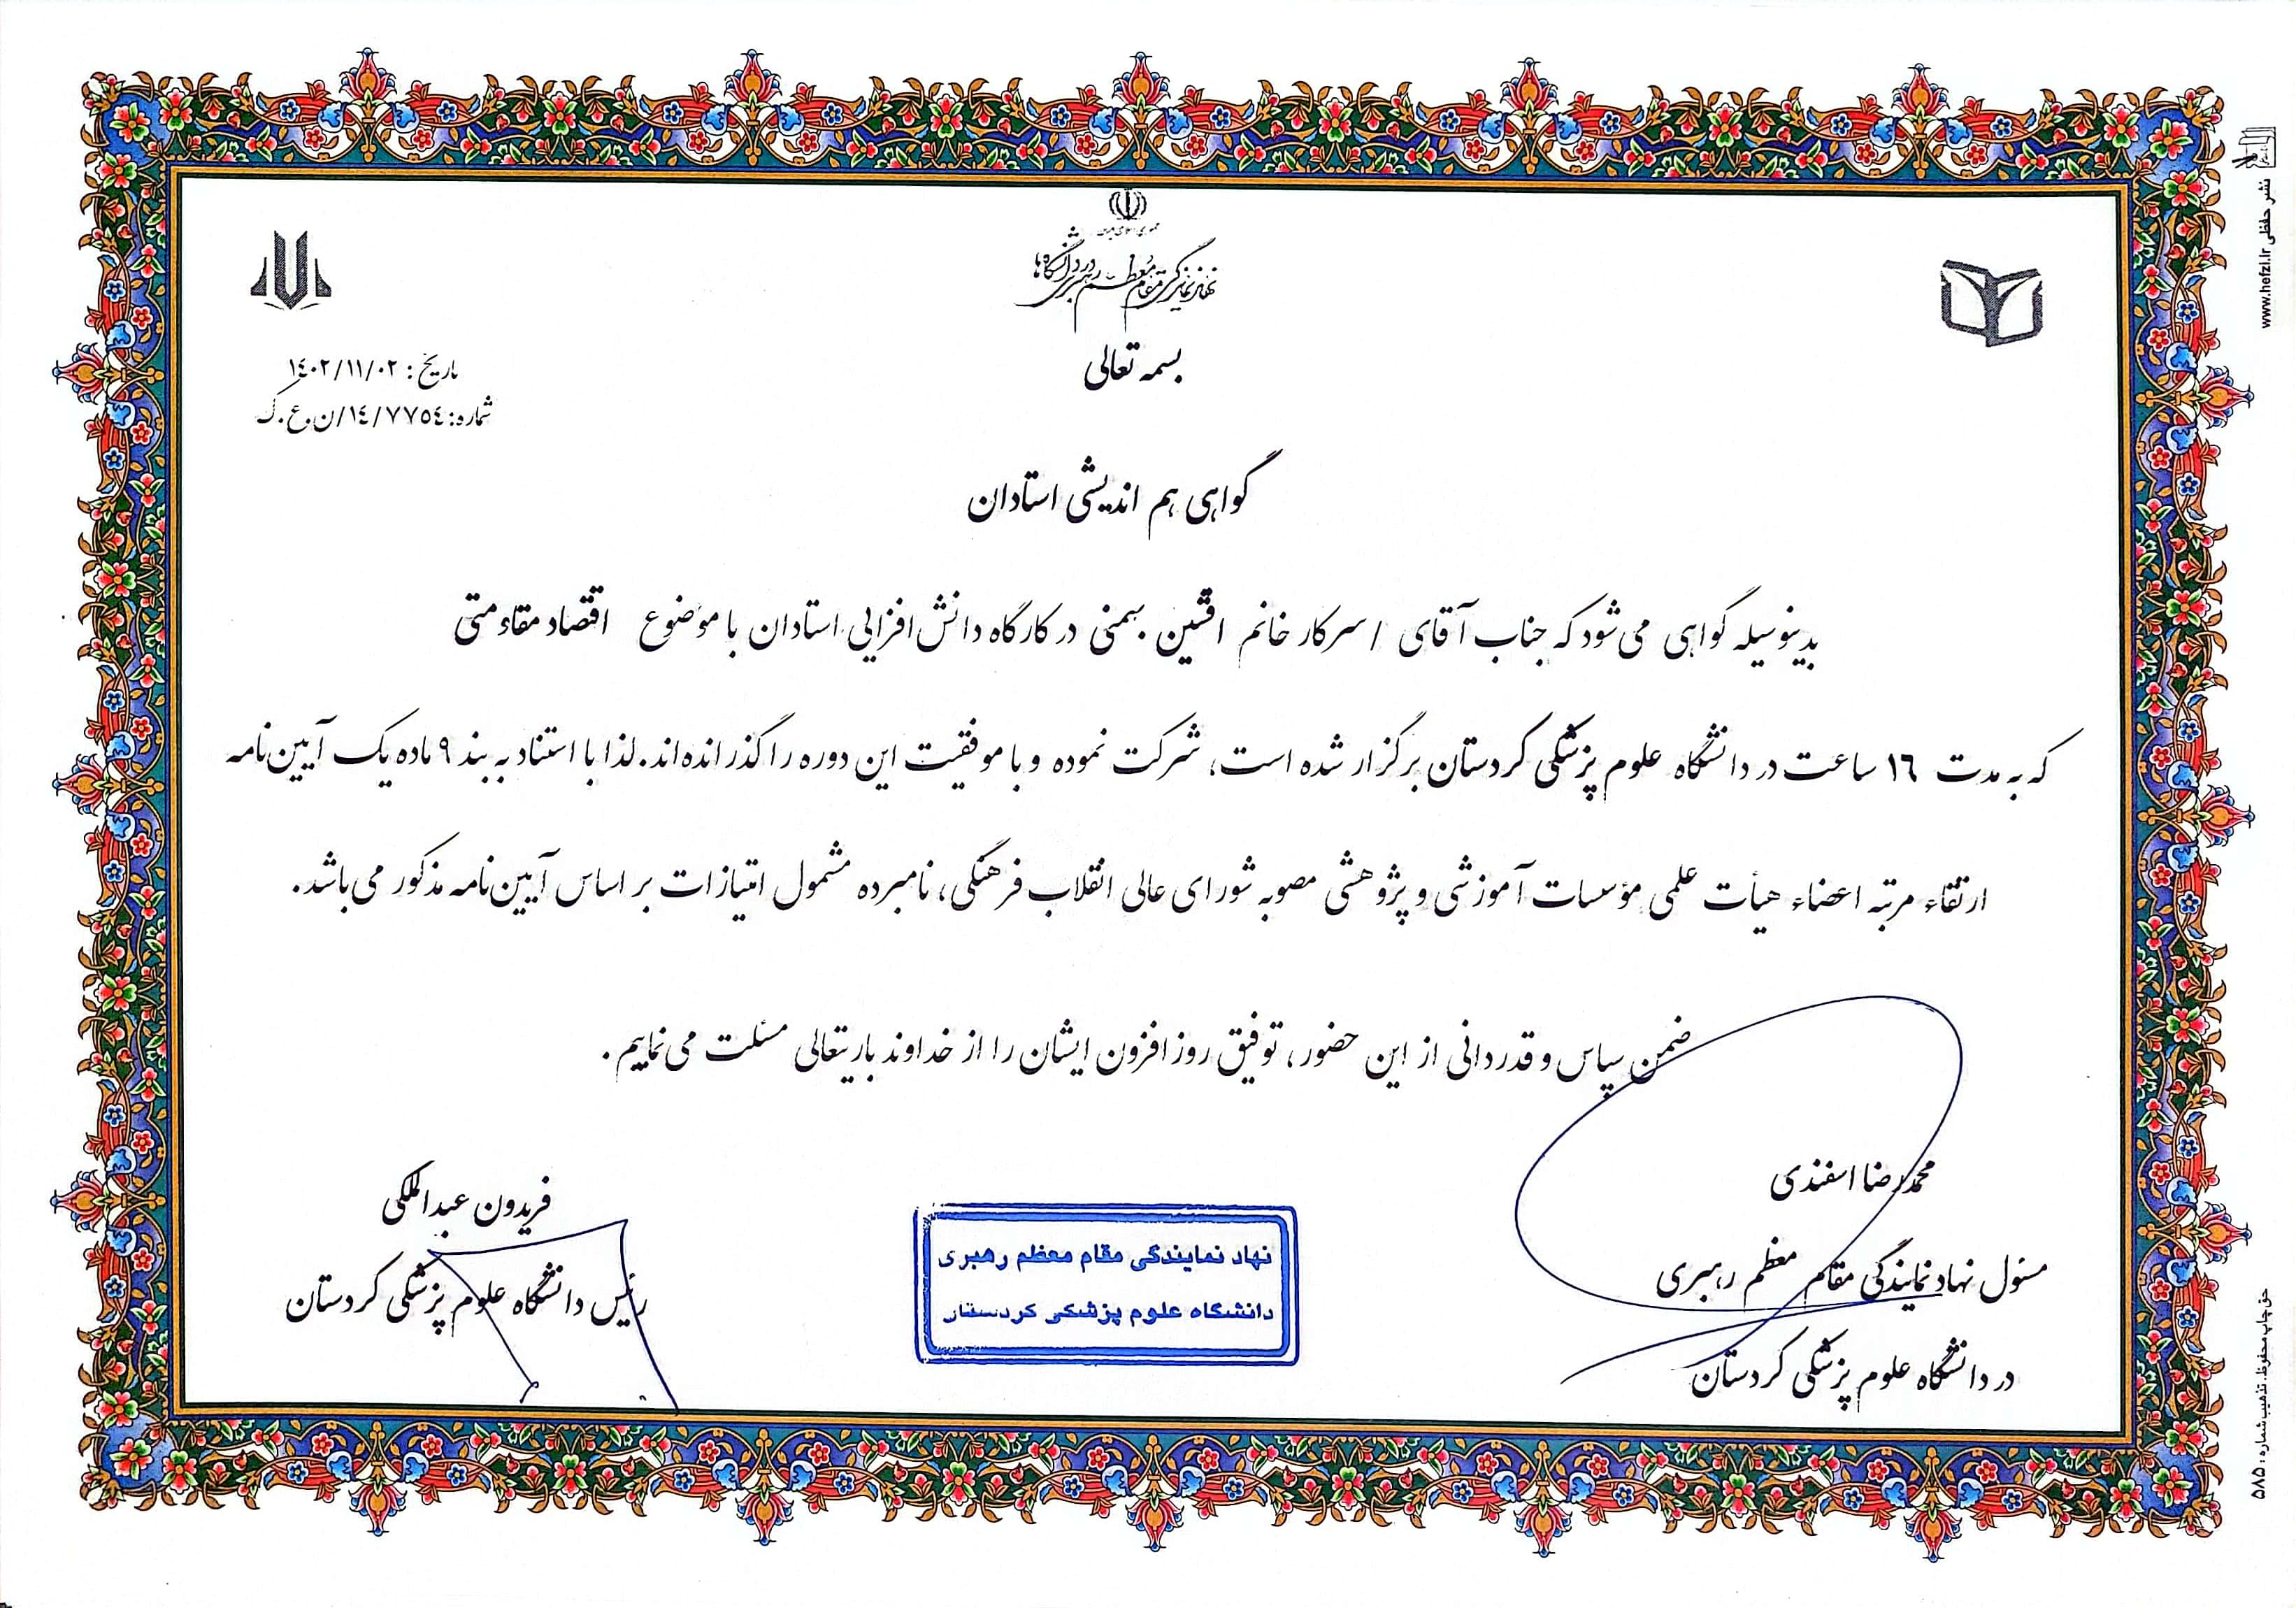 جمهوری اسلامی ایران
نهاد نمایندگی مقام معظم رهبری در دانشگاه‌ها
بسمه تعالی
تاریخ: ١٤٠٢/١١/٠٢
شماره: ١٤/٧٧٥٤/ن.ع.ک
گواهی هم اندیشی استادان
بدینوسیله گواهی می‌شود که جناب آقای / سرکار خانم افشین بهمنی در کارگاه دانش افزایی استادان با موضوع اقتصاد مقاومتی
که به مدت ١٦ ساعت در دانشگاه علوم پزشکی کردستان برگزار شده است، شرکت نموده و با موفقیت این دوره را گذرانده‌اند. لذا با استناد به بند ٩ ماده یک آیین‌نامه
ارتقاء مرتبه اعضاء هیأت علمی مؤسسات آموزشی و پژوهشی مصوبه شورای عالی انقلاب فرهنگی، نامبرده مشمول امتیازات بر اساس آیین‌نامه مذکور می‌باشد.
ضمن سپاس و قدردانی از این حضور، توفیق روزافزون ایشان را از خداوند باریتعالی مسئلت می‌نماییم.
محمدرضا اسفندی
مسئول نهاد نمایندگی مقام معظم رهبری
در دانشگاه علوم پزشکی کردستان
نهاد نمایندگی مقام معظم رهبری
دانشگاه علوم پزشکی کردستان
فریدون عبدالملکی
رئیس دانشگاه علوم پزشکی کردستان
نشر حفظی www.hefzi.ir
حق چاپ محفوظ. تذهیب شماره: ۵۸۵